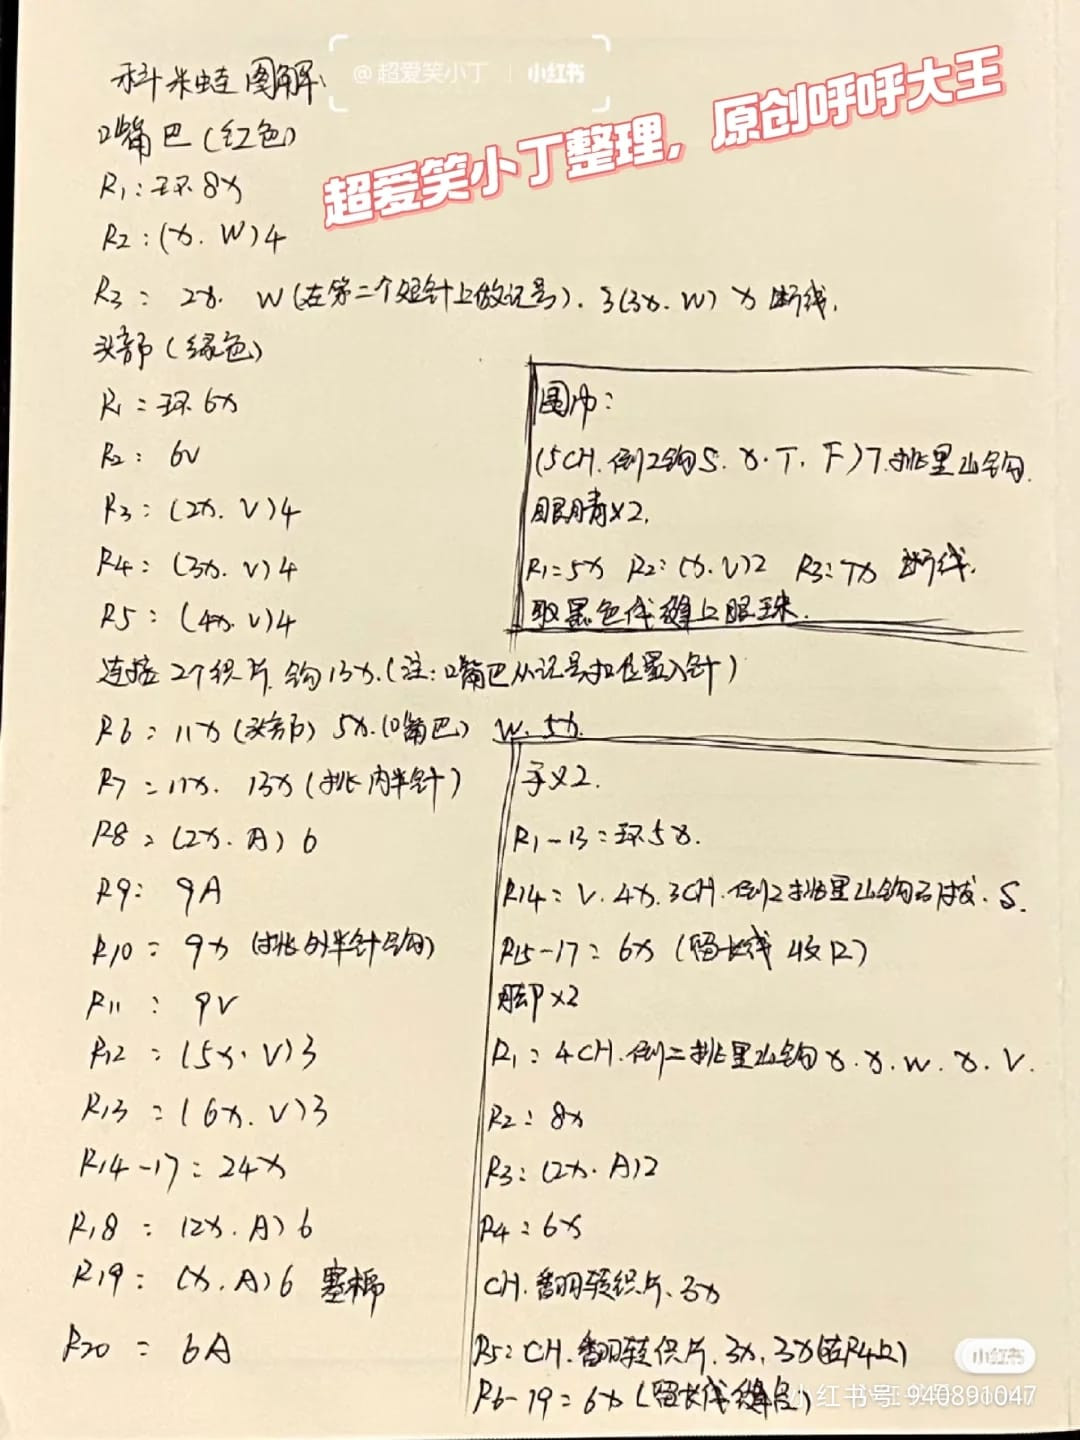 科米蛙图解:
@超爱笑小丁 | 小红书
超爱笑小丁整理，原创呼呼大王
嘴巴(红色)
R1:环8x
R2:(x.W)4
R3: 2x. W(在第二个短针上做记号).3(3x.W) x 断线.
头部(绿色)
R1:环6x
R2: 6V
R3:(2x.V)4
R4:(3x.V)4
R5:(4x.V)4
连接2个织片,钩13x.(注:嘴巴从记号扣位置入针)
R6: 11x(头部) 5x.(嘴巴) W.5x.
R7: 11x. 13x(挑内半针)
R8:(2x.A)6
R9: 9A
R10: 9x (挑外半针钩)
R11: 9V
R12:(5x.V)3
R13:(6x.V)3
R14-17:24x
R18:(2x.A)6
R19:(x.A)6 塞棉
R20: 6A
围巾:
(5CH.倒2钩S.x.T.F)7.挑里山钩.
眼睛x2.
R1:5x R2:(x.V)2 R3:7x 断线.
取黑色线缝上眼珠.
手x2.
R1-13:环5x.
R14:V.4x.3CH.倒2挑里山钩.S.
R15-17:6x(留长线收口)
脚x2
R1:4CH.倒二挑里山钩x.x.w.x.V.
R2:8x
R3:(2x.A)2
R4:6x
CH.翻转织片.3x
R5:CH.翻转织片.3x.3x(在R4上)
R6-19:6x(留长线缝合)
小红书
小红书号:940891047